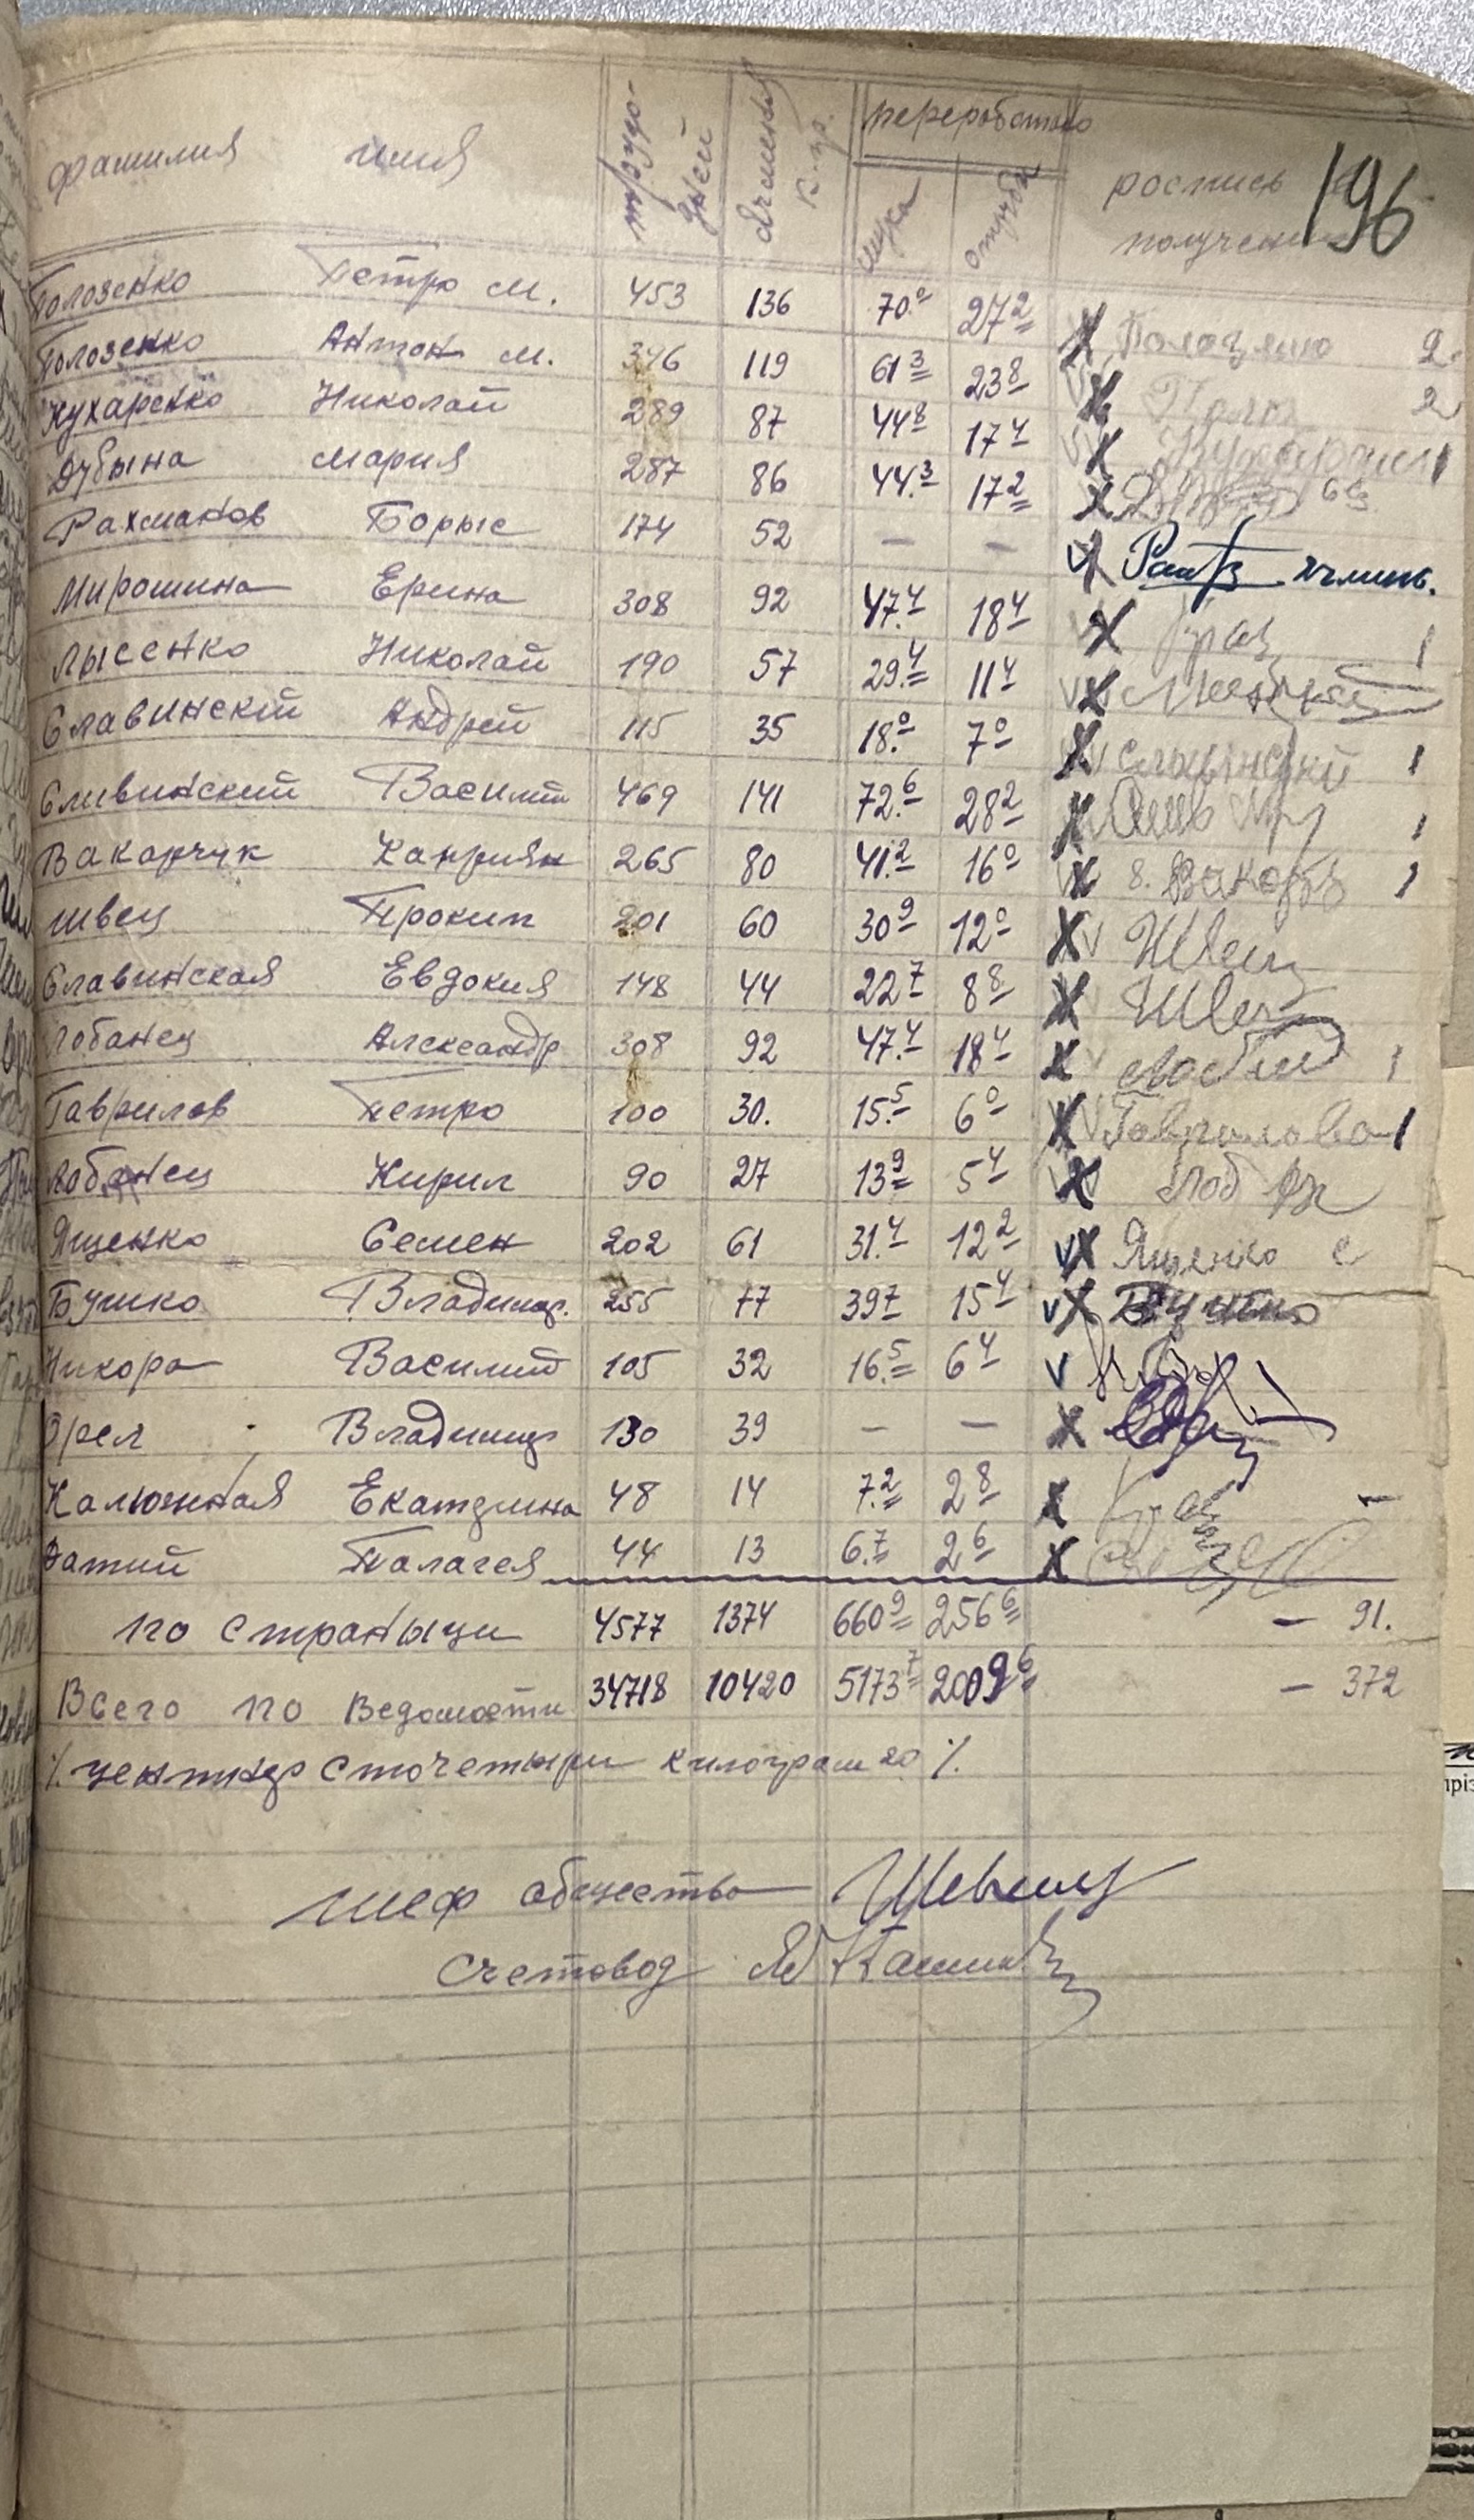 фамилия имя трудодней ячменя к-гр. переработано мука отруба роспись получен 196
Полозенко Петро М. 453 136 70.0 27 2 2
Полозенко Антон М. 396 119 61 3 23 8 2
Кухаренко Николай 289 87 44 8 17 4 1
Дубына Мария 287 86 44.3 17 2
Рахманов Борыс 174 52 — —
Мирошина Ерина 308 92 47.4 18 4 1
Лысенко Николай 190 57 29.4 11 4
Славинский Андрей 115 35 18.0 7 0 Славинский 1
Сливинский Василий 469 141 72.6 28 2 1
Вакарчук Каприян 265 80 41.2 16 0 1
Швец Прокип 201 60 30 9 12 0 Швец
Славинская Евдокия 148 44 22 7 8 8 Швец
Лобанец Александр 308 92 47.4 18 4 1
Гаврилов Петро 100 30. 15.5 6 0 1
Лобанец Кирил 90 27 13 9 5 4
Ященко Семен 202 61 31.4 12 2 Ященко С
Бушко Владимир. 255 77 39 7 15 4 Бушко
Никора Василий 105 32 16.5 6 4
Орел Владимир 130 39 — —
Калюжная Екатерина 48 14 7.2 2 8 —
Затий Палагея 44 13 6.7 2 6
по страныци 4577 1374 660 9 256 6 — 91.
Всего по Ведомости 34718 10420 5173 7 2009 6 — 372
% центнер сточетыри килограм 20 %.
шеф общества Шевчец
Счетовод